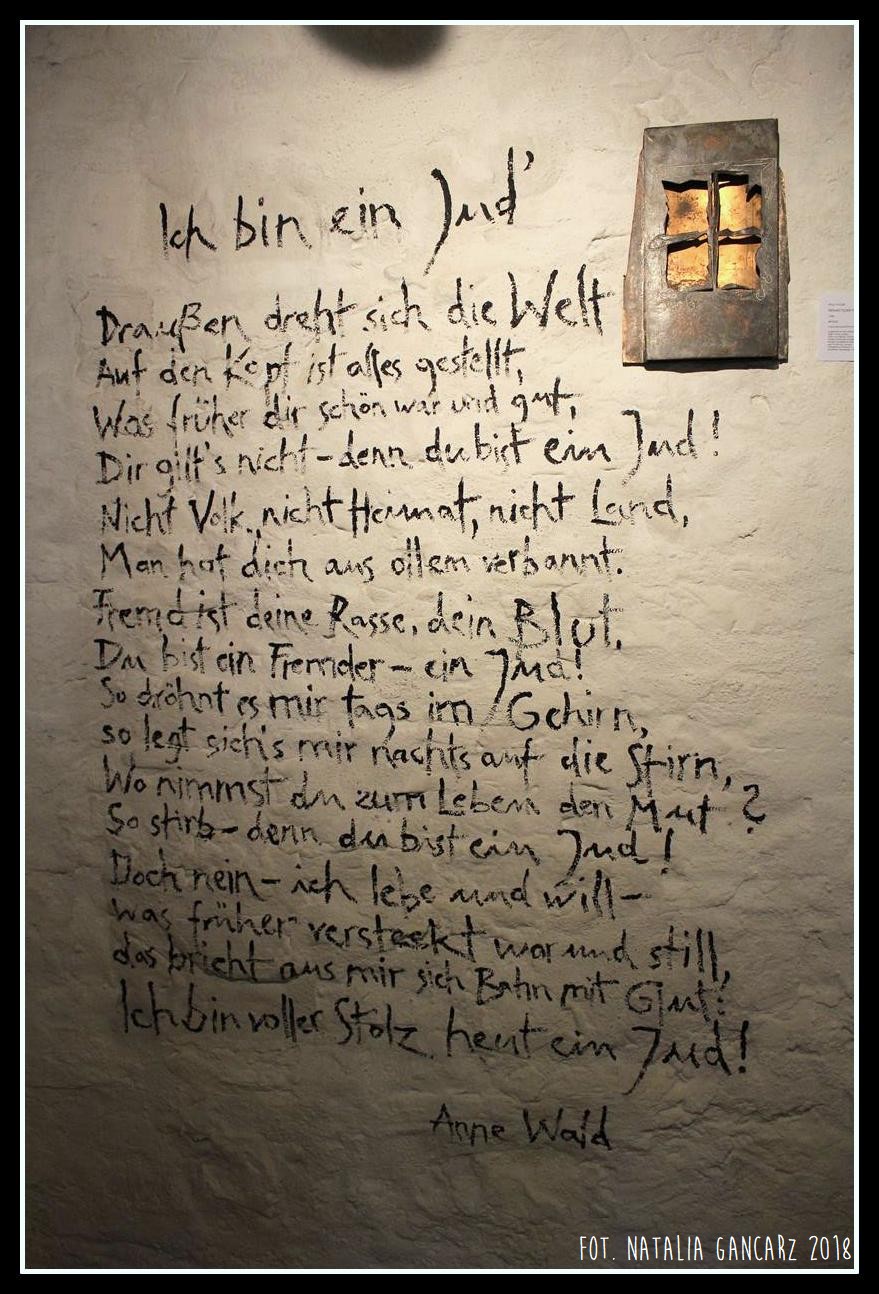 Ich bin ein Jud'
Draußen dreht sich die Welt
Auf den Kopf ist alles gestellt,
Was früher dir schön war und gut,
Dir gilt's nicht - denn du bist ein Jud!
Nicht Volk, nicht Heimat, nicht Land,
Man hat dich aus allem verbannt.
Fremd ist deine Rasse, dein Blut,
Du bist ein Fremder - ein Jud!
So dröhnt es mir tags im Gehirn,
so legt sich's mir nachts auf die Stirn,
Wo nimmst du zum Leben den Mut?
So stirb - denn du bist ein Jud!
Doch nein - ich lebe und will -
was früher versteckt war und still,
das bricht aus mir sich Bahn mit Glut!
Ich bin voller Stolz heut ein Jud!
Anne Wald
FOT. NATALIA GANCARZ 2018